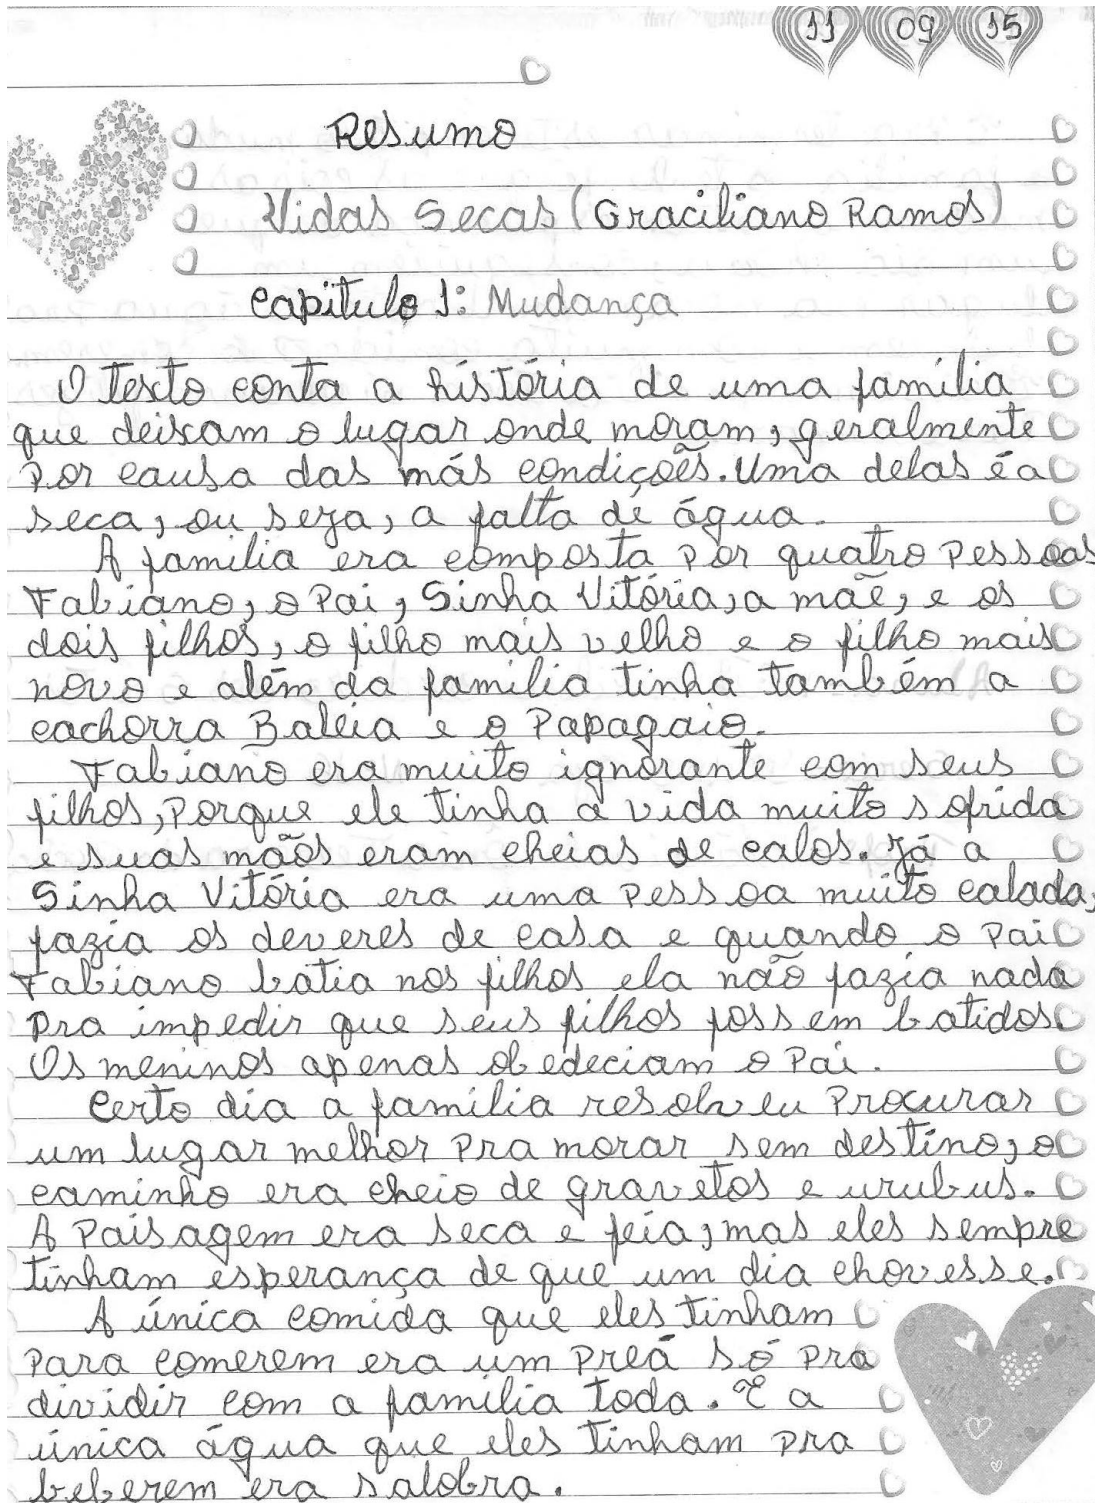 11 09 15
Resumo
Vidas Secas (Graciliano Ramos)
Capitulo 1: Mudança
O texto conta a história de uma família
que deixam o lugar onde moram, geralmente
por causa das más condições. Uma delas é a
seca, ou seja, a falta de água.
A família era composta por quatro pessoas
Fabiano, o Pai, Sinha Vitória, a mãe, e os
dois filhos, o filho mais velho e o filho mais
novo e além da família tinha também a
cachorra Baleia e o Papagaio.
Fabiano era muito ignorante com seus
filhos, porque ele tinha a vida muito sofrida
e suas mãos eram cheias de calos. Já a
Sinha Vitória era uma pessoa muito calada,
fazia os deveres de casa e quando o Pai
Fabiano batia nos filhos ela não fazia nada
pra impedir que seus filhos fossem batidos.
Os meninos apenas obedeciam o Pai.
Certo dia a família resolveu procurar
um lugar melhor pra morar sem destino, o
caminho era cheio de gravetos e urubus.
A Paisagem era seca e feia, mas eles sempre
tinham esperança de que um dia chovesse.
A única comida que eles tinham
para comerem era um preá só pra
dividir com a família toda. E a
única água que eles tinham pra
beberem era salobra.